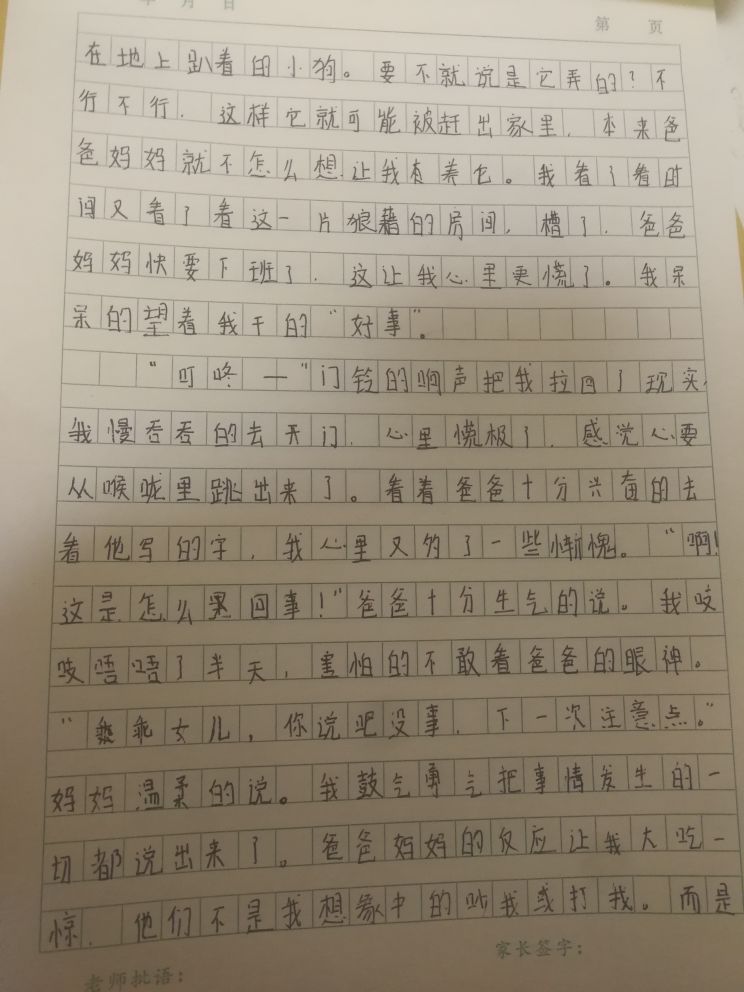 年 月 日
第 页
在地上趴着的小狗。要不就说是它弄的?不
行不行.这样它就可能被赶出家里.本来爸
爸妈妈就不怎么想让我有养它。我看了看时
间又看了看这一片狼藉的房间,槽了.爸爸
妈妈快要下班了.这让我心里更慌了。我呆
呆的望着我干的“好事”。
“叮咚—”门铃的响声把我拉回了现实.
我慢吞吞的去开门.心里慌极了.感觉心要
从喉咙里跳出来了。看着爸爸十分兴奋的去
看他写的字,我心里又多了一些惭愧。“啊!
这是怎么回事!”爸爸十分生气的说。我吱
吱唔唔了半天,害怕的不敢看爸爸的眼神。
“乖乖女儿,你说吧没事.下一次注意点。”
妈妈温柔的说。我鼓气勇气把事情发生的一
切都说出来了。爸爸妈妈的反应让我大吃一
惊.他们不是我想象中的吵我或打我。而是
家长签字:
老师批语: